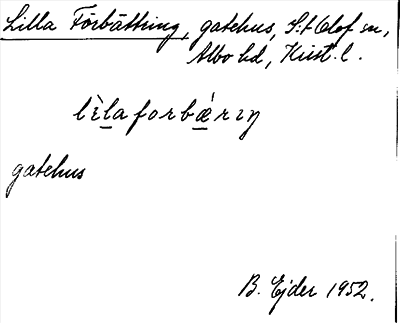 Lilla Förbättring, gatehus, S:t Olof sn,
Albo hd, Krist. l.
lèlaforbǽrıŋ
gatehus
B. Ejder 1952.